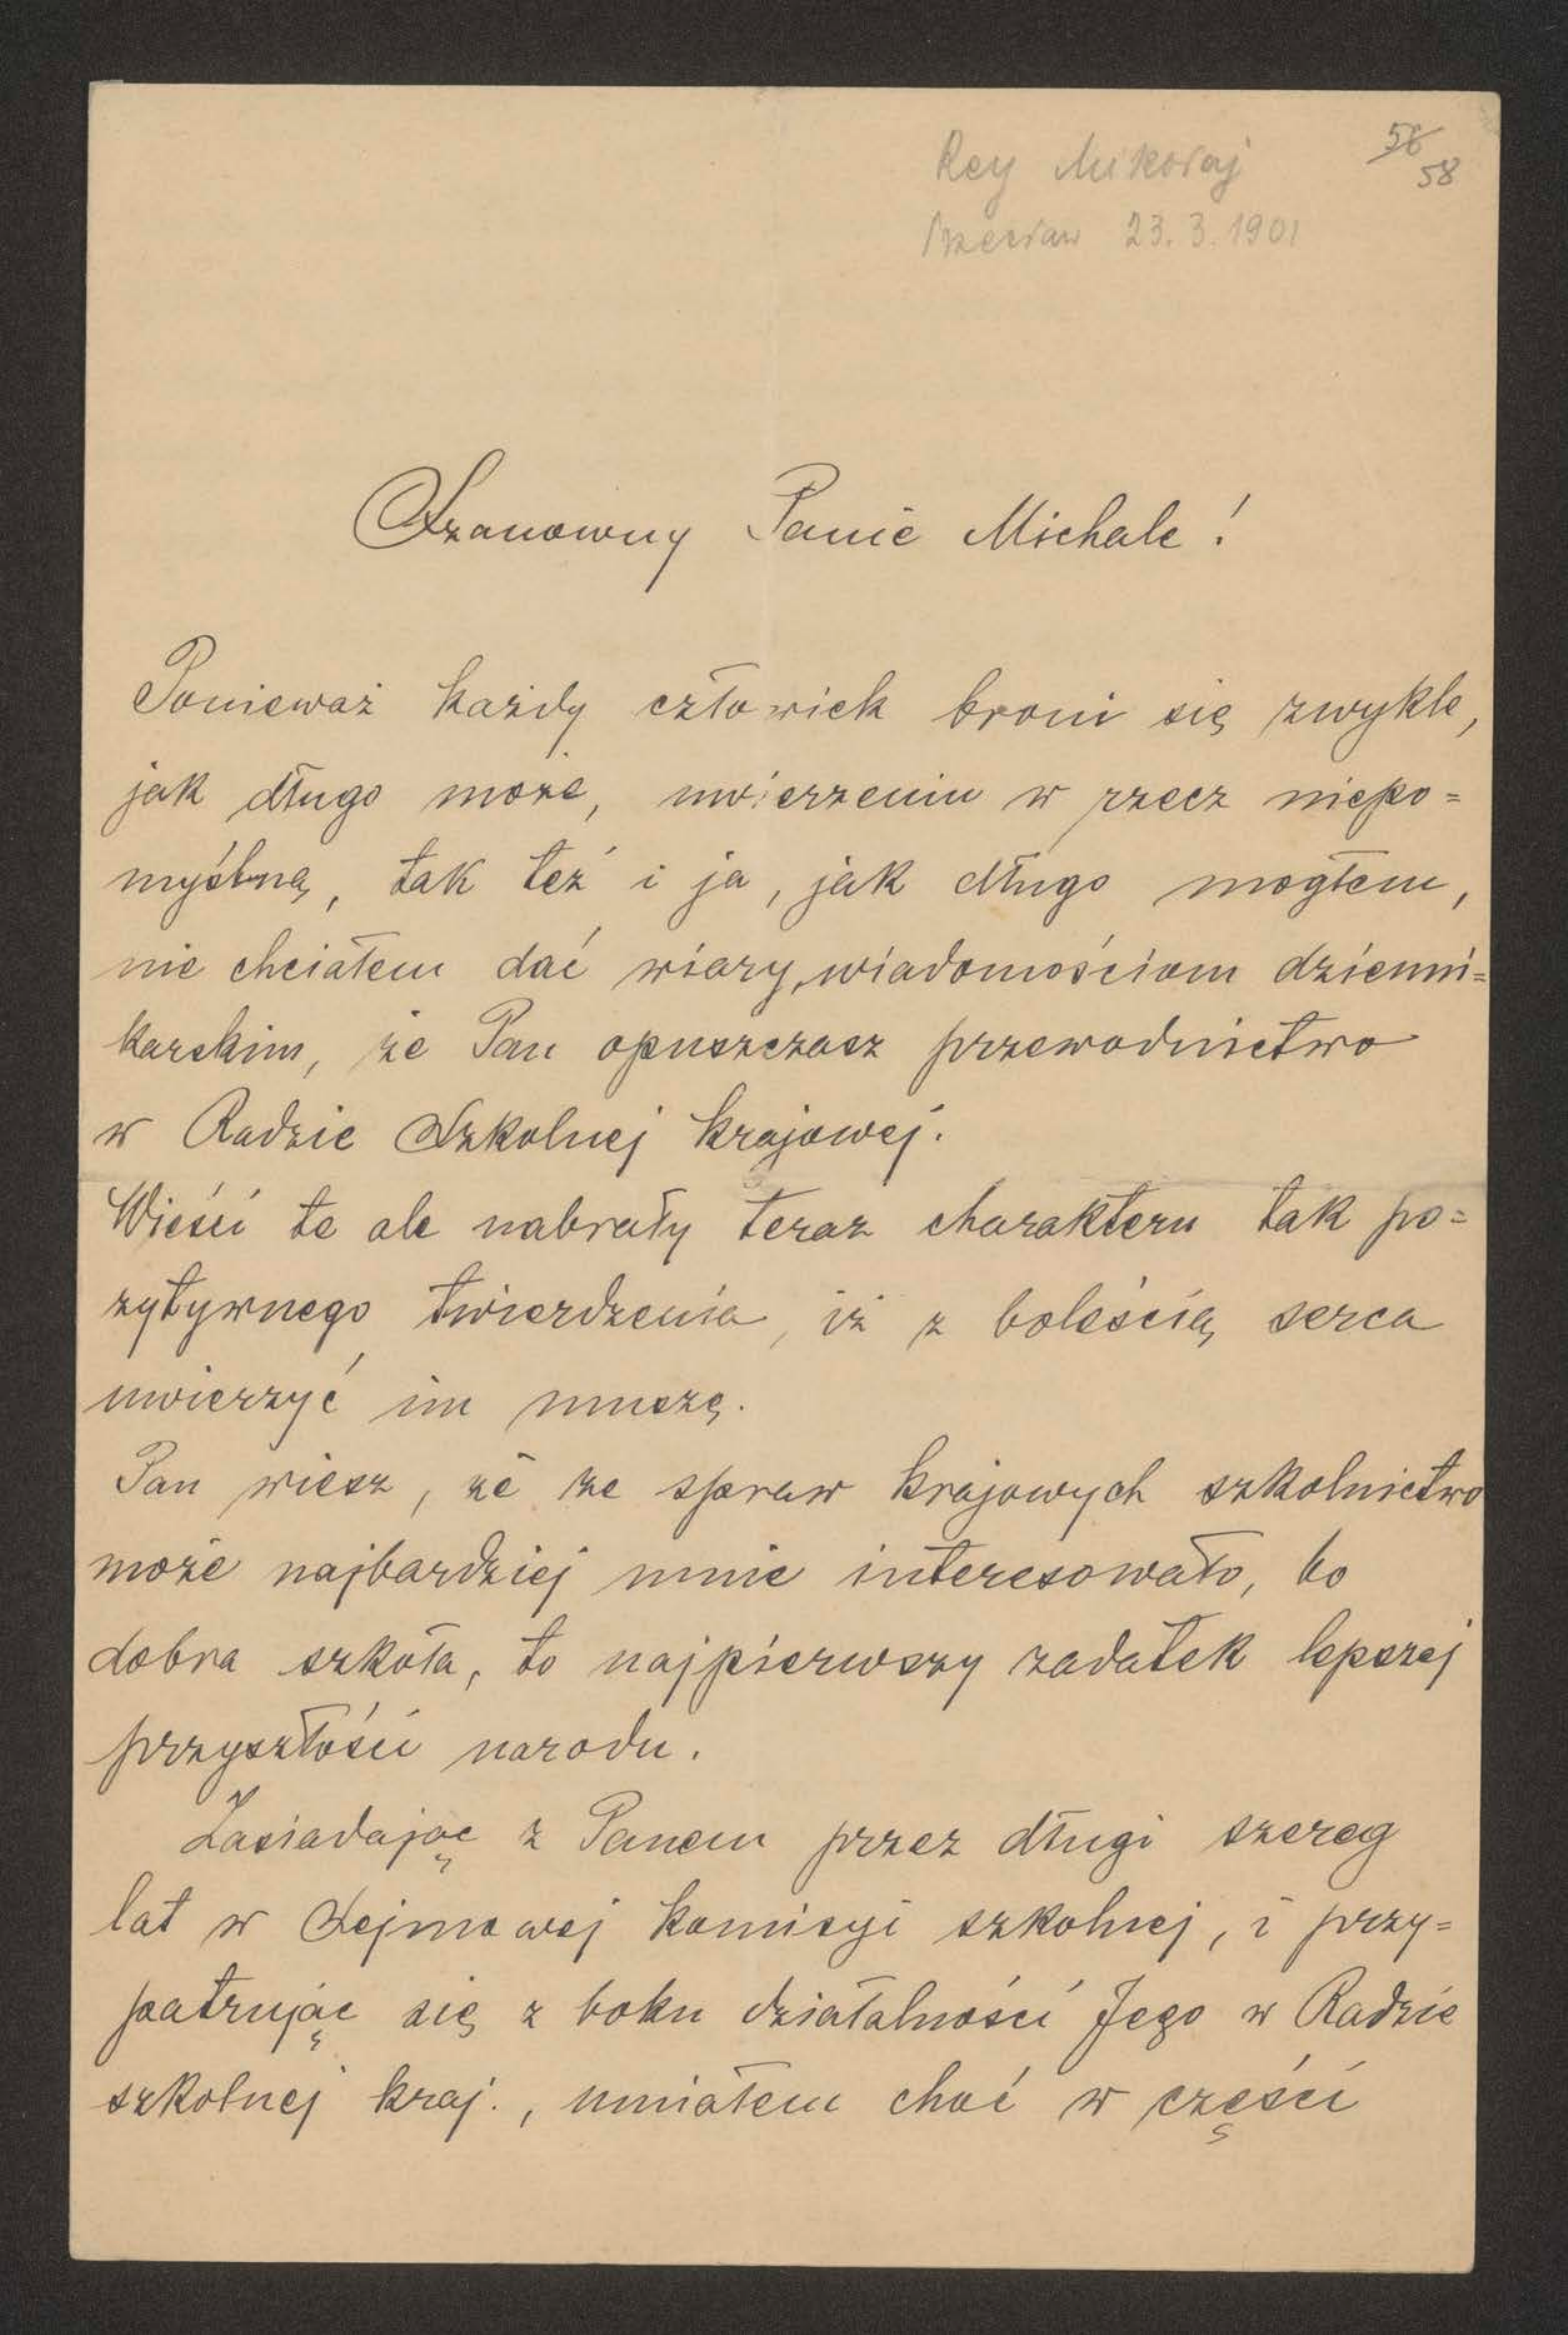 Rey Mikołaj
56
58
Przecław 23.3.1901
Szanowny Panie Michale!
Ponieważ każdy człowiek broni się zwykle,
jak długo może, uwierzeniu w rzecz niepo=
myślną, tak też i ja, jak długo mogłem,
nie chciałem dać wiary, wiadomościom dzienni=
karskim, że Pan opuszczasz przewodnictwo
w Radzie Szkolnej krajowej.
Wieści te ale nabrały teraz charakteru tak po=
zytywnego twierdzenia, iż z boleścią serca
uwierzyć im muszę.
Pan wiesz, że ze spraw krajowych szkolnictwo
może najbardziej mnie interesowało, bo
dobra szkoła, to najpierwszy zadatek lepszej
przyszłości narodu.
Zasiadając z Panem przez długi szereg
lat w Sejmowej komisyi szkolnej, i przy=
patrując się z boku działalności Jego w Radzie
szkolnej kraj., umiałem choć w części